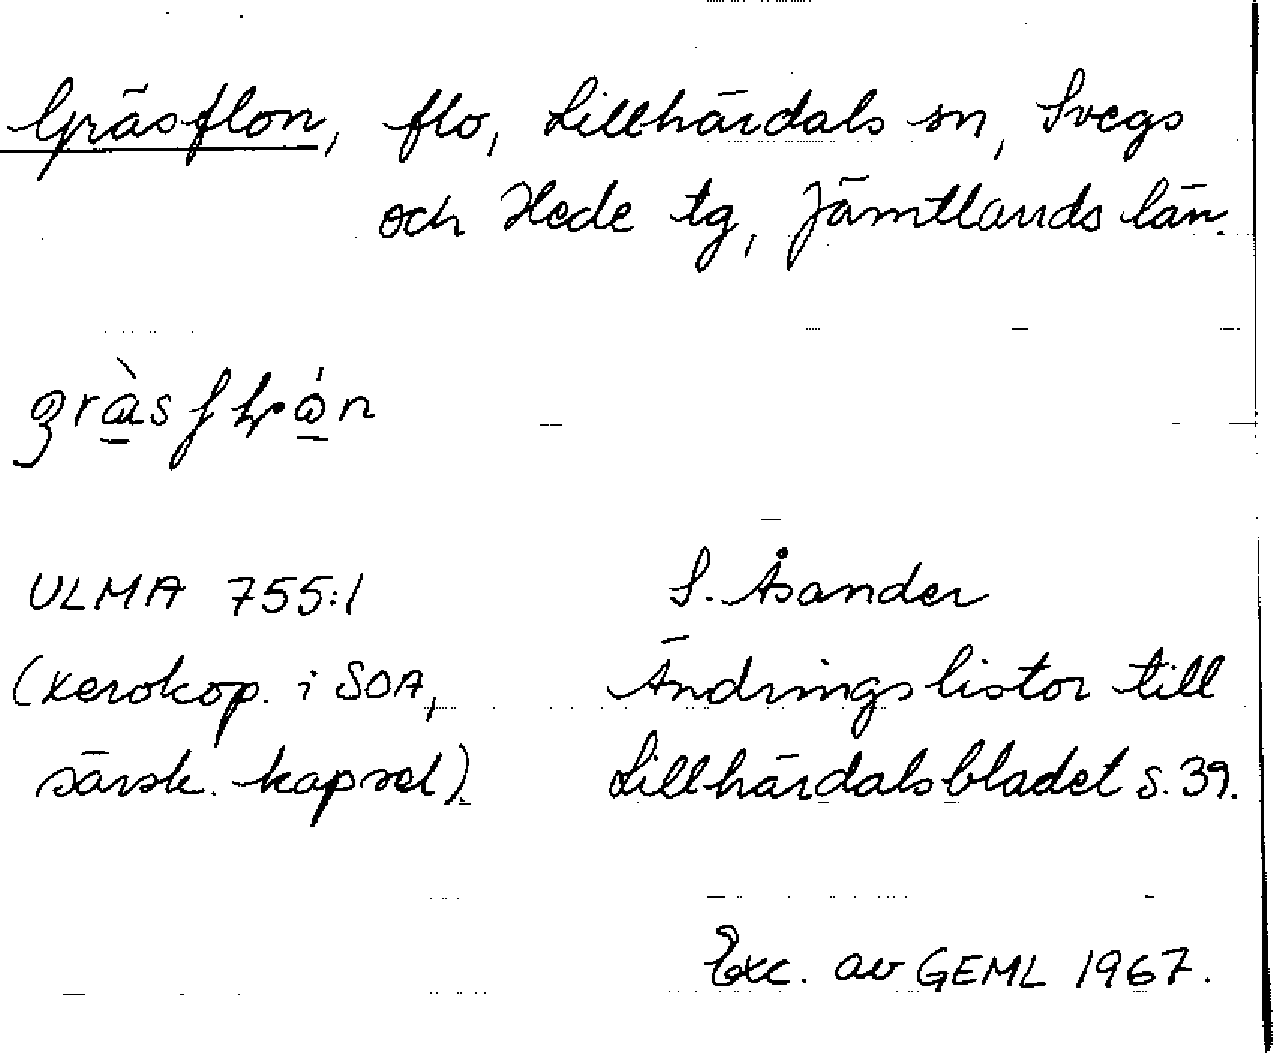 Gräsflon, flo, Lillhärdals sn, Svegs
och Hede tg, Jämtlands län.
ULMA 755:1
(xerokop. i SOA,
särsk. kapsel).
S. Åsander
Ändringslistor till
Lillhärdalsbladet s. 39.
Exc. av GEML 1967.